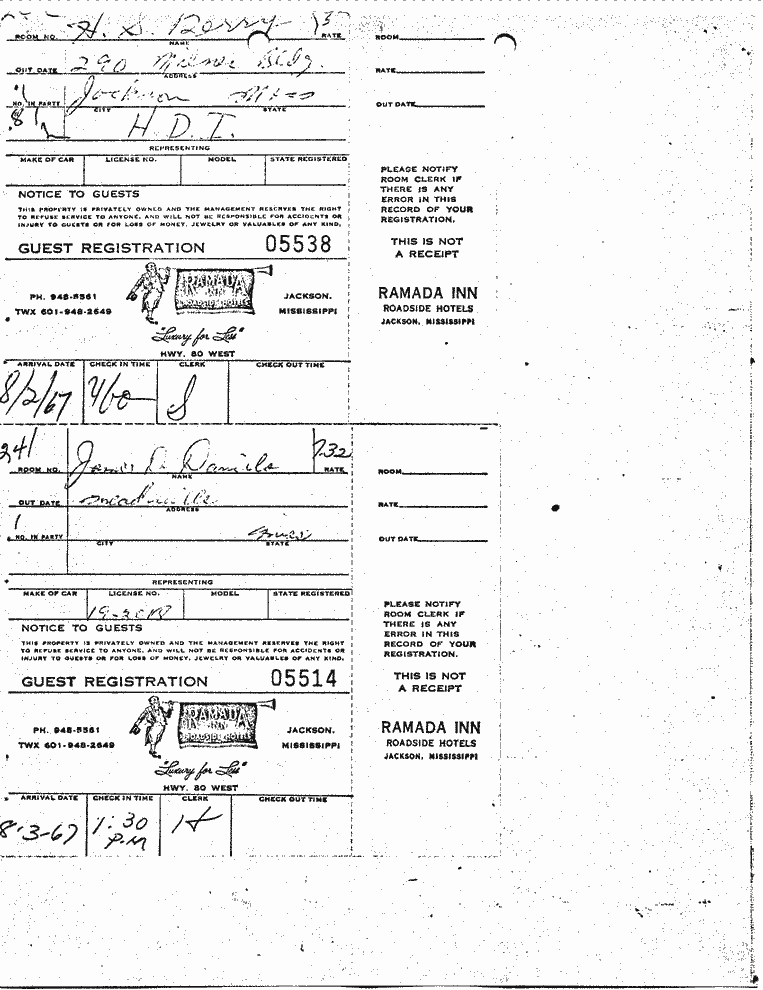 H. S. Berry
ROOM NO. NAME RATE
290 Milner Bldg.
OUT DATE ADDRESS
1 Jackson Miss
NO. IN PARTY CITY STATE
8/2 H. D. I.
REPRESENTING
MAKE OF CAR LICENSE NO. MODEL STATE REGISTERED
NOTICE TO GUESTS
THIS PROPERTY IS PRIVATELY OWNED AND THE MANAGEMENT RESERVES THE RIGHT
TO REFUSE SERVICE TO ANYONE, AND WILL NOT BE RESPONSIBLE FOR ACCIDENTS OR
INJURY TO GUESTS OR FOR LOSS OF MONEY, JEWELRY OR VALUABLES OF ANY KIND.
GUEST REGISTRATION 05538
RAMADA
INN
ROADSIDE HOTELS
PH. 948-5561
TWX 601-948-2649
JACKSON,
MISSISSIPPI
"Luxury for Less"
HWY. 80 WEST
ARRIVAL DATE CHECK IN TIME CLERK CHECK OUT TIME
8/2/67 460 S
ROOM
RATE
OUT DATE
PLEASE NOTIFY
ROOM CLERK IF
THERE IS ANY
ERROR IN THIS
RECORD OF YOUR
REGISTRATION.
THIS IS NOT
A RECEIPT
RAMADA INN
ROADSIDE HOTELS
JACKSON, MISSISSIPPI
241 James D. Daniels 732
ROOM NO. NAME RATE
Meadville
OUT DATE ADDRESS
1 Miss
NO. IN PARTY CITY STATE
REPRESENTING
MAKE OF CAR LICENSE NO. MODEL STATE REGISTERED
NOTICE TO GUESTS
THIS PROPERTY IS PRIVATELY OWNED AND THE MANAGEMENT RESERVES THE RIGHT
TO REFUSE SERVICE TO ANYONE, AND WILL NOT BE RESPONSIBLE FOR ACCIDENTS OR
INJURY TO GUESTS OR FOR LOSS OF MONEY, JEWELRY OR VALUABLES OF ANY KIND.
GUEST REGISTRATION 05514
RAMADA
INN
ROADSIDE HOTELS
PH. 948-5561
TWX 601-948-2649
JACKSON,
MISSISSIPPI
"Luxury for Less"
HWY. 80 WEST
ARRIVAL DATE CHECK IN TIME CLERK CHECK OUT TIME
8-3-67 1:30 P.M H
ROOM
RATE
OUT DATE
PLEASE NOTIFY
ROOM CLERK IF
THERE IS ANY
ERROR IN THIS
RECORD OF YOUR
REGISTRATION.
THIS IS NOT
A RECEIPT
RAMADA INN
ROADSIDE HOTELS
JACKSON, MISSISSIPPI